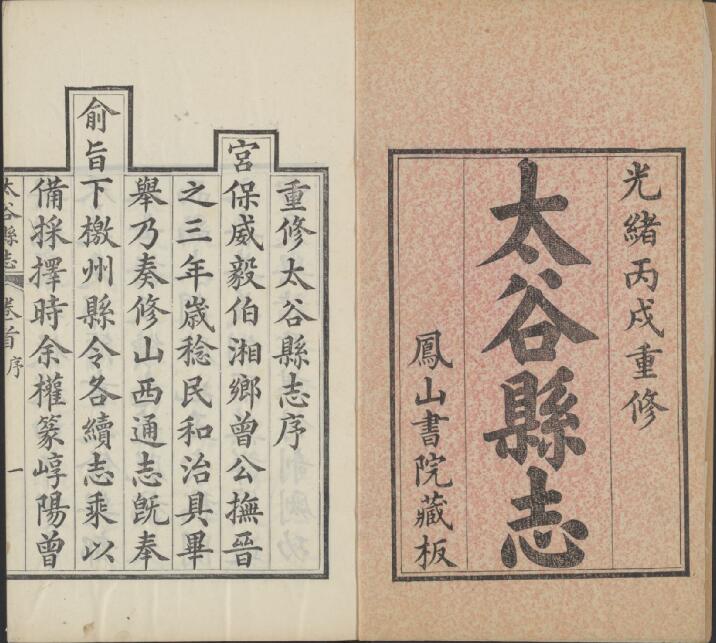 光緒丙戌重修
太谷縣志
鳳山書院藏板
重修太谷縣志序
宮保威毅伯湘鄉曾公撫晉
之三年歲稔民和治具畢
舉乃奏修山西通志既奉
俞旨下檄州縣令各續志乘以
備採擇時余權篆崞陽曾
太谷縣志 卷首 序 一